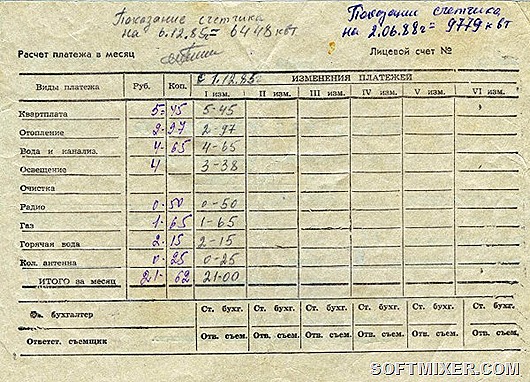 Показание счетчика
на 6.12.85г= 6448 квт
Показание счетчика
на 2.06.88г= 9779 квт
Расчет платежа в месяц
Лицевой счет №
Виды платежа Руб. Коп. С 1.12.85г. ИЗМЕНЕНИЯ ПЛАТЕЖЕЙ
I изм. II изм. III изм. IV изм. V изм. VI изм.
Квартплата 5= 45 5-45
Отопление 2 97 2-97
Вода и канализ. 4 65 4-65
Освещение 4 3-38
Очистка
Радио 0 50 0-50
Газ 1 65 1-65
Горячая вода 2 15 2-15
Кол. антенна 0 25 0-25
ИТОГО за месяц 21- 62 21-00
бухгалтер Ст. бухг. Ст. бухг. Ст. бухг. Ст. бухг. Ст. бухг. Ст. бухг.
Ответст. съемщик Отв. съем. Отв. съем. Отв. съем. Отв. съем. Отв. съем. Отв. съем.
SOFTMIXER.COM